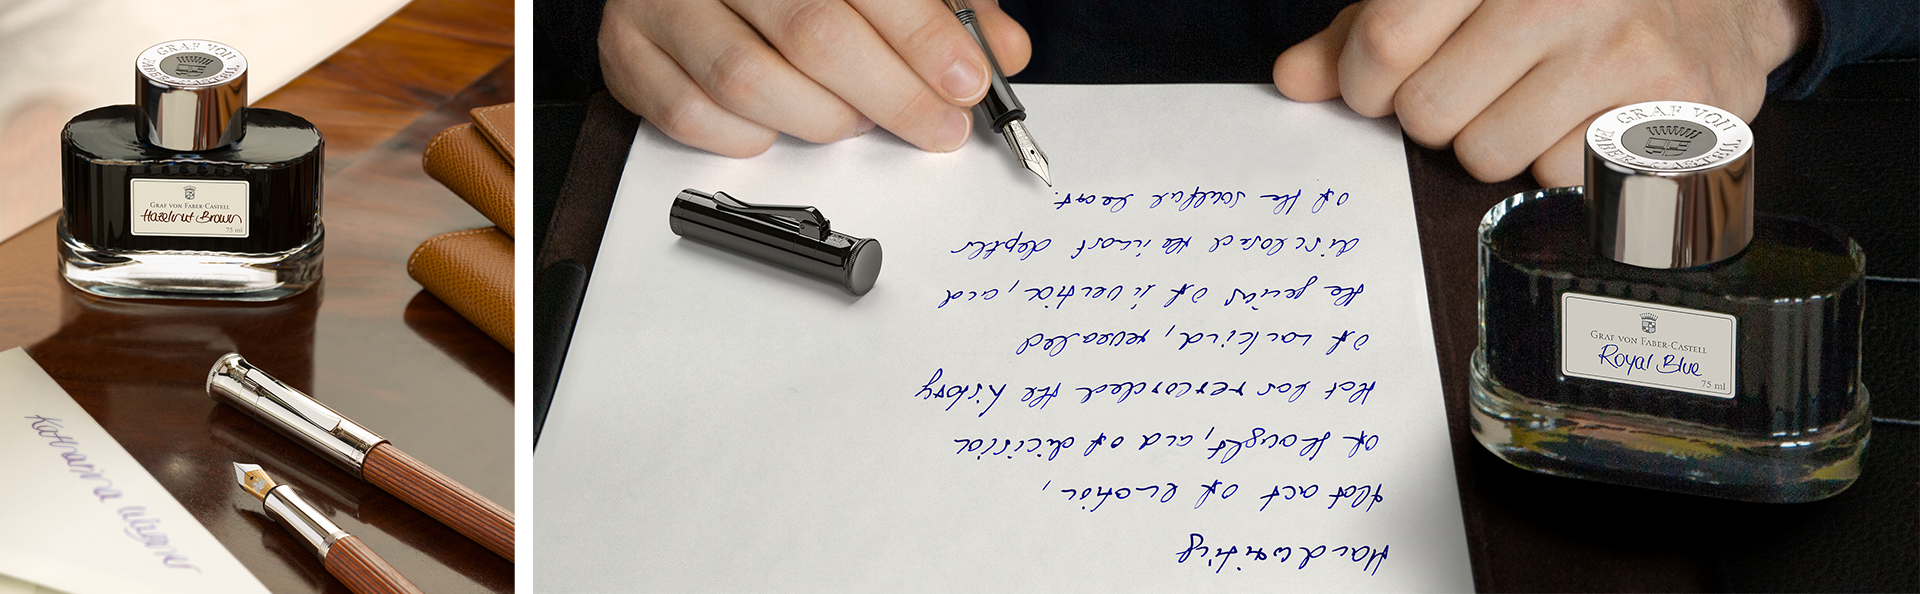 GRAF VON FABER-CASTELL
GRAF VON FABER-CASTELL
Hazelnut Brown
75 ml
Katharina Wagner
Handwriting
that act of emotion,
of thought, and of decision
that has recorded the history
of mankind, revealed
the genius of invention, and
disclosed the inmost depths
of the soulful heart.
GRAF VON FABER-CASTELL
GRAF VON FABER-CASTELL
Royal Blue
75 ml